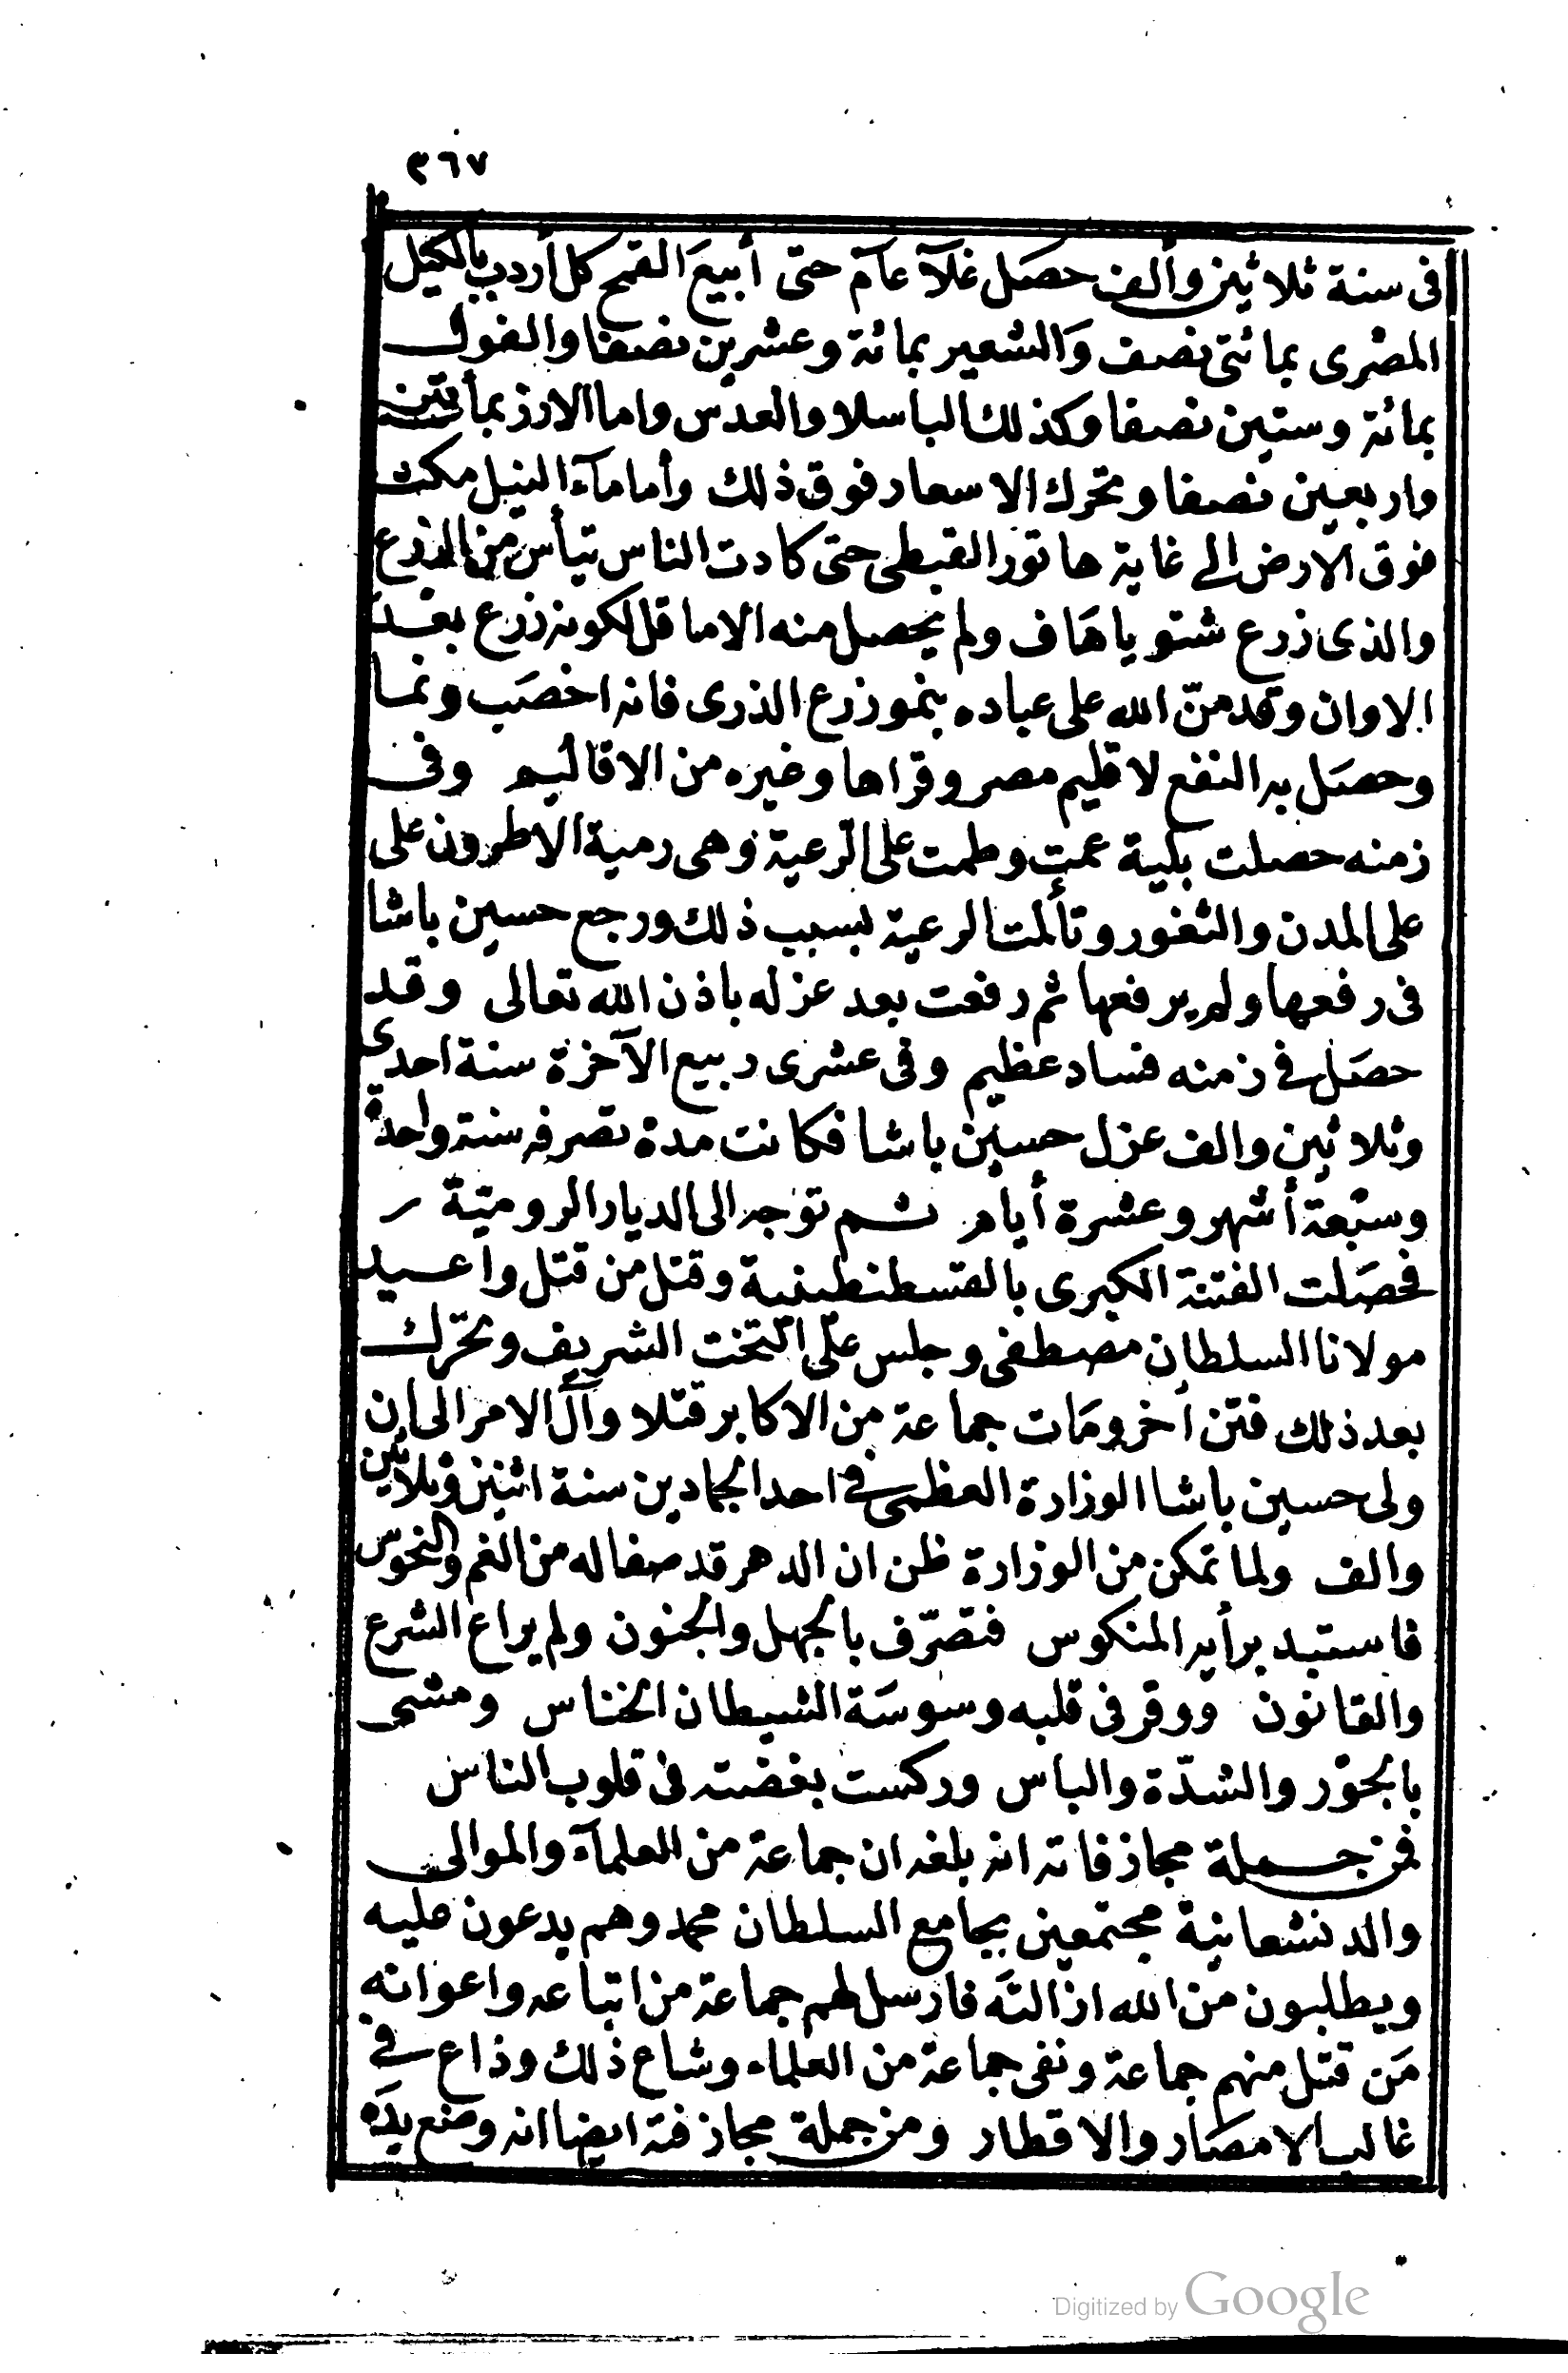 ٣٦٧
فى سنة ثلاثين وألف حصَل غلآ عآم حتى أبيعَ القمح كل أردب بالكيل
المصْرى بمائتى نصف وَالشعير بمائة وعشرين نصفا والفول
بمائة وستين نصفا وكذلك الباسلا والعدس واما الارز بمأتين
واربعين نصفا وتحرك الاسعار فوق ذلك وأما مآء النيل مكث
فوق الارض الى غاية هاتور القبطى حتى كادت الناس تيأس من الزرع
والذى زرع شتويا هَاف ولم يحصل منه الا ما قل لكونه زرع بعْد
الاوان وقد منّ الله على عباده بنمو زرع الذرى فانه اخصَب ونما
وحصَل به النفع لاقليم مصر وقراها وغيره من الاقاليم وفى
زمنه حصلت بلية عمت وطمت على الرعية وهى رمية الاطرون على
على المدن والثغور وتألمت الرعية بسبب ذلك ورجع حسين باشا
فى رفعها ولم يرفعها ثم رفعت بعد عزله باذن الله تعالى وقد
حصَل فى زمنه فساد عظيم وفى عشرى ربيع الآخرة سنة احدى
وثلاثين والف عزل حسين باشا فكانت مدة تصرفه سنة واحدة
وسبْعة أشهر وعشرة أيام ثم توجه الى الديار الروميّة
فحصَلت الفتنة الكبرى بالقسطنطينية وقتل من قتل واعيد
مولانا السلطان مصطفى وجلس على التخت الشريف وتحرّك
بعد ذلك فتن أخر ومَات جماعة من الاكابر قتلا وآل الامر الى ان
ولى حسين باشا الوزارة العظمى فى احد الجمادين سنة اثنين وثلاثين
والف ولما تمكن من الوزارة ظن ان الدهر قد صفا له من الغم والنحوس
فاستبد برأيه المنكوس فتصَرّف بالجهل والجنون ولم يراع الشرع
والقانون ووقر فى قلبه وسوسَة الشيطان الخناس ومشى
بالجوْر والشدّة والباس وركست بغضته فى قلوب الناس
فمن جملة مجازفاته انه بلغه ان جماعة من العلمآء والموالى
والدنشعانية مجتمعين بجامع السلطان محمد وهم يدعون عليه
ويطلبون من الله ازالتَه فارسل لهم جماعة من اتباعه واعوانه
مَن قتل منهم جماعة ونفى جماعة من العلماء وشاع ذلك وذاع فى
غالب الامصَار والاقطار ومن جملة مجازفته ايضا انه وضع يدَه
Digitized by Google